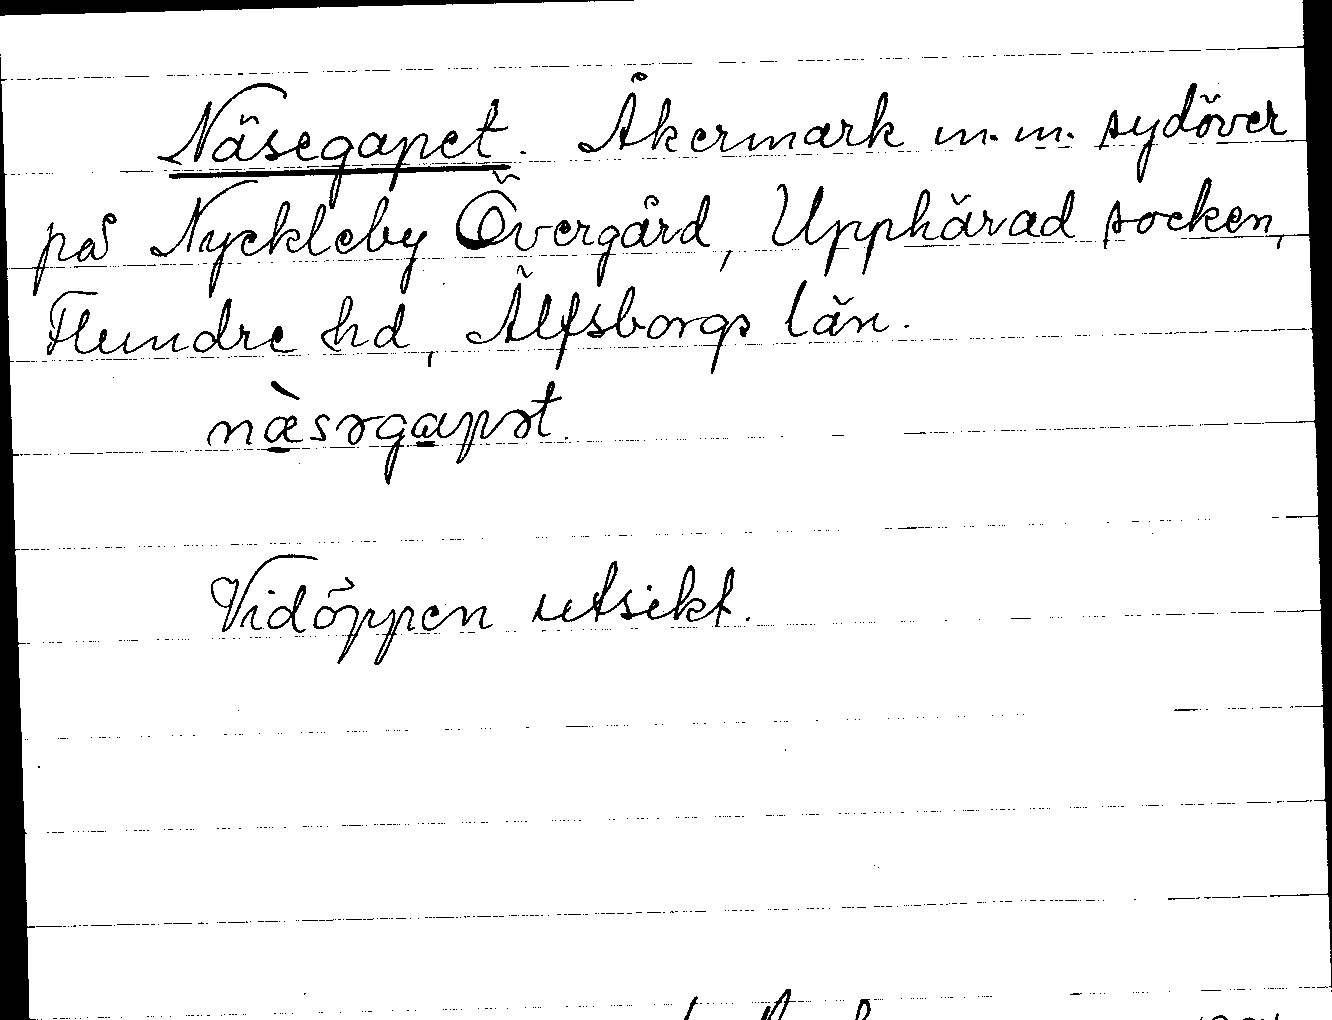 Näsegapet. Åkermark m.m. sydöver
på Nyckleby Övergård, Upphärad socken,
Flundre hd, Älfsborgs län.
næ̀səgapət.
Vidöppen utsikt.